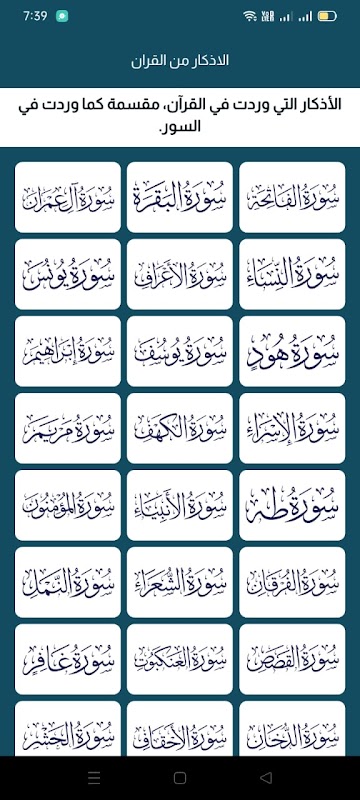 7:39
الاذكار من القران
الأذكار التي وردت في القرآن، مقسمة كما وردت في
السور.
سُورَةُ الفَاتِحَةِ سُورَةُ البَقَرَةِ سُورَةُ آلِ عِمْرَان
سُورَةُ النِّسَاءِ سُورَةُ الأَعْرَافِ سُورَةُ يُونُسَ
سُورَةُ هُودٍ سُورَةُ يُوسُفَ سُورَةُ إِبْرَاهِيمَ
سُورَةُ الإِسْرَاءِ سُورَةُ الكَهْفِ سُورَةُ مَرْيَمَ
سُورَةُ طه سُورَةُ الأَنْبِيَاءِ سُورَةُ المُؤْمِنُونَ
سُورَةُ الفُرْقَانِ سُورَةُ الشُّعَرَاءِ سُورَةُ النَّمْلِ
سُورَةُ القَصَصِ سُورَةُ العَنْكَبُوتِ سُورَةُ غَافِرٍ
سُورَةُ الدُّخَانِ سُورَةُ الأَحْقَافِ سُورَةُ الحَشْرِ